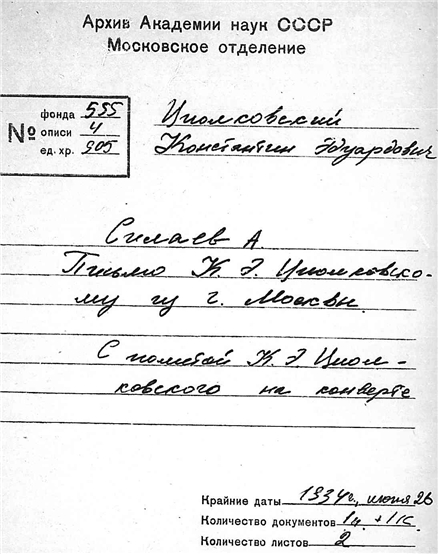 Архив Академии наук СССР
Московское отделение
№
фонда 555
описи 4
ед. хр. 905
Циолковский
Константин Эдуардович
Силаев А
Письмо К. Э. Циолковско-
му из г. Москвы.
С пометой К. Э. Циол-
ковского на конверте
Крайние даты 1934г., июня 26
Количество документов 1п. +1к.
Количество листов 2